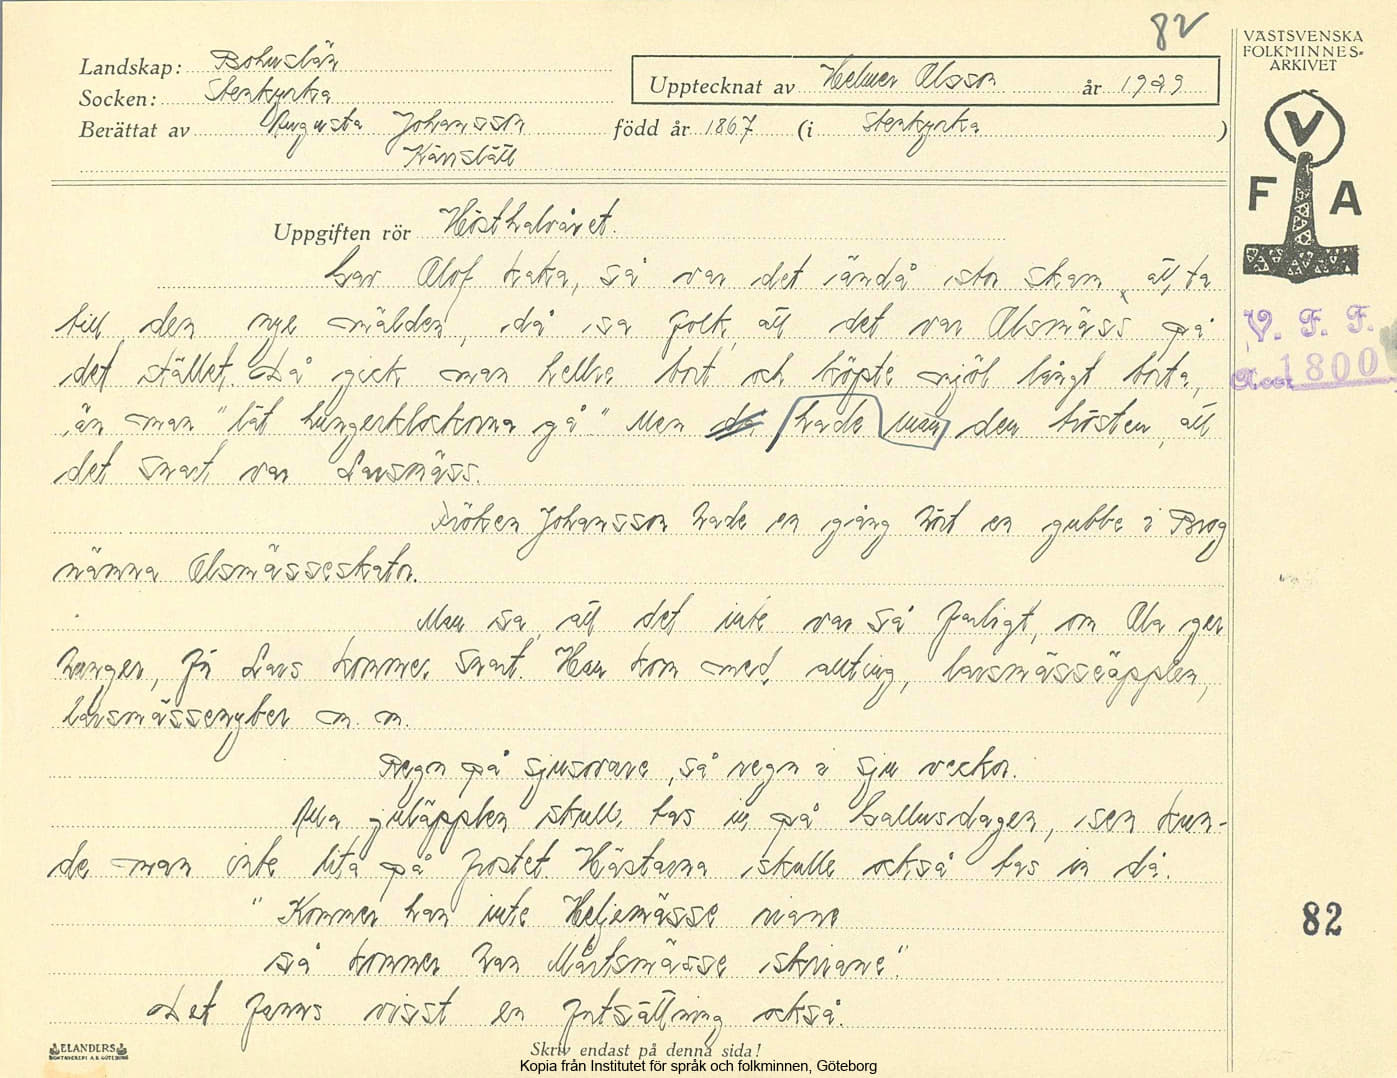 82
VÄSTSVENSKA
FOLKMINNES-
ARKIVET
Landskap: Bohuslän
Socken: Stenkyrka
Upptecknat av Helmer Olsson år 1929
Berättat av Augusta Johansson född år 1867 (i Stenkyrka)
Kårslätt
V
F A
Uppgiften rör Hösthalvåret.
Gav Olof kaka, så var det ändå stor skam att ta
till den nye mälden, då sa folk, att det var Olsmäss på
det stället. Då gick man hellre bort och köpte mjöl långt borta,
än man "lät hungerklockorna gå." Men då hade man den trösten, att
det snart var Larsmäss.
V. F. F.
Acc. 1800
Fröken Johansson hade en gång hört en gubbe i Brog
nämna Olsmässeskator.
Man sa, att det inte var så farligt, om Ola ger
hunger, för Lars kommer snart. Han kom med allting, larsmässeäpplen,
larsmässeryber m. m.
Regn på sjusovare, så regn i sju veckor.
Alla juläpplen skulle tas in på Gallusdagen, sen kun-
de man inte lita på frostet. Hästarna skulle också tas in då.
"Kommer han inte Heljemässe riane
så kommer han Mårtsmässe skriane".
Det fanns visst en fortsättning också.
82
ELANDERS
BOKTRYCKERI A.B. GÖTEBORG
Skriv endast på denna sida!
Kopia från Institutet för språk och folkminnen, Göteborg